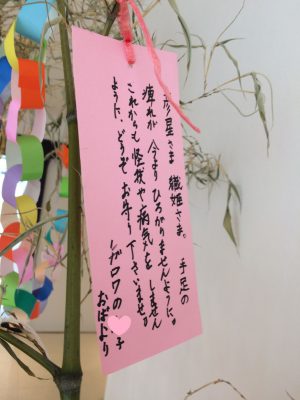 彦星さま 織姫さま。 手足の
痺れが 今より ひろがりませんように。
これからも 怪我や病気を しません
ように、どうぞ お守り 下さいませ。
ゲロワの 子
おばより